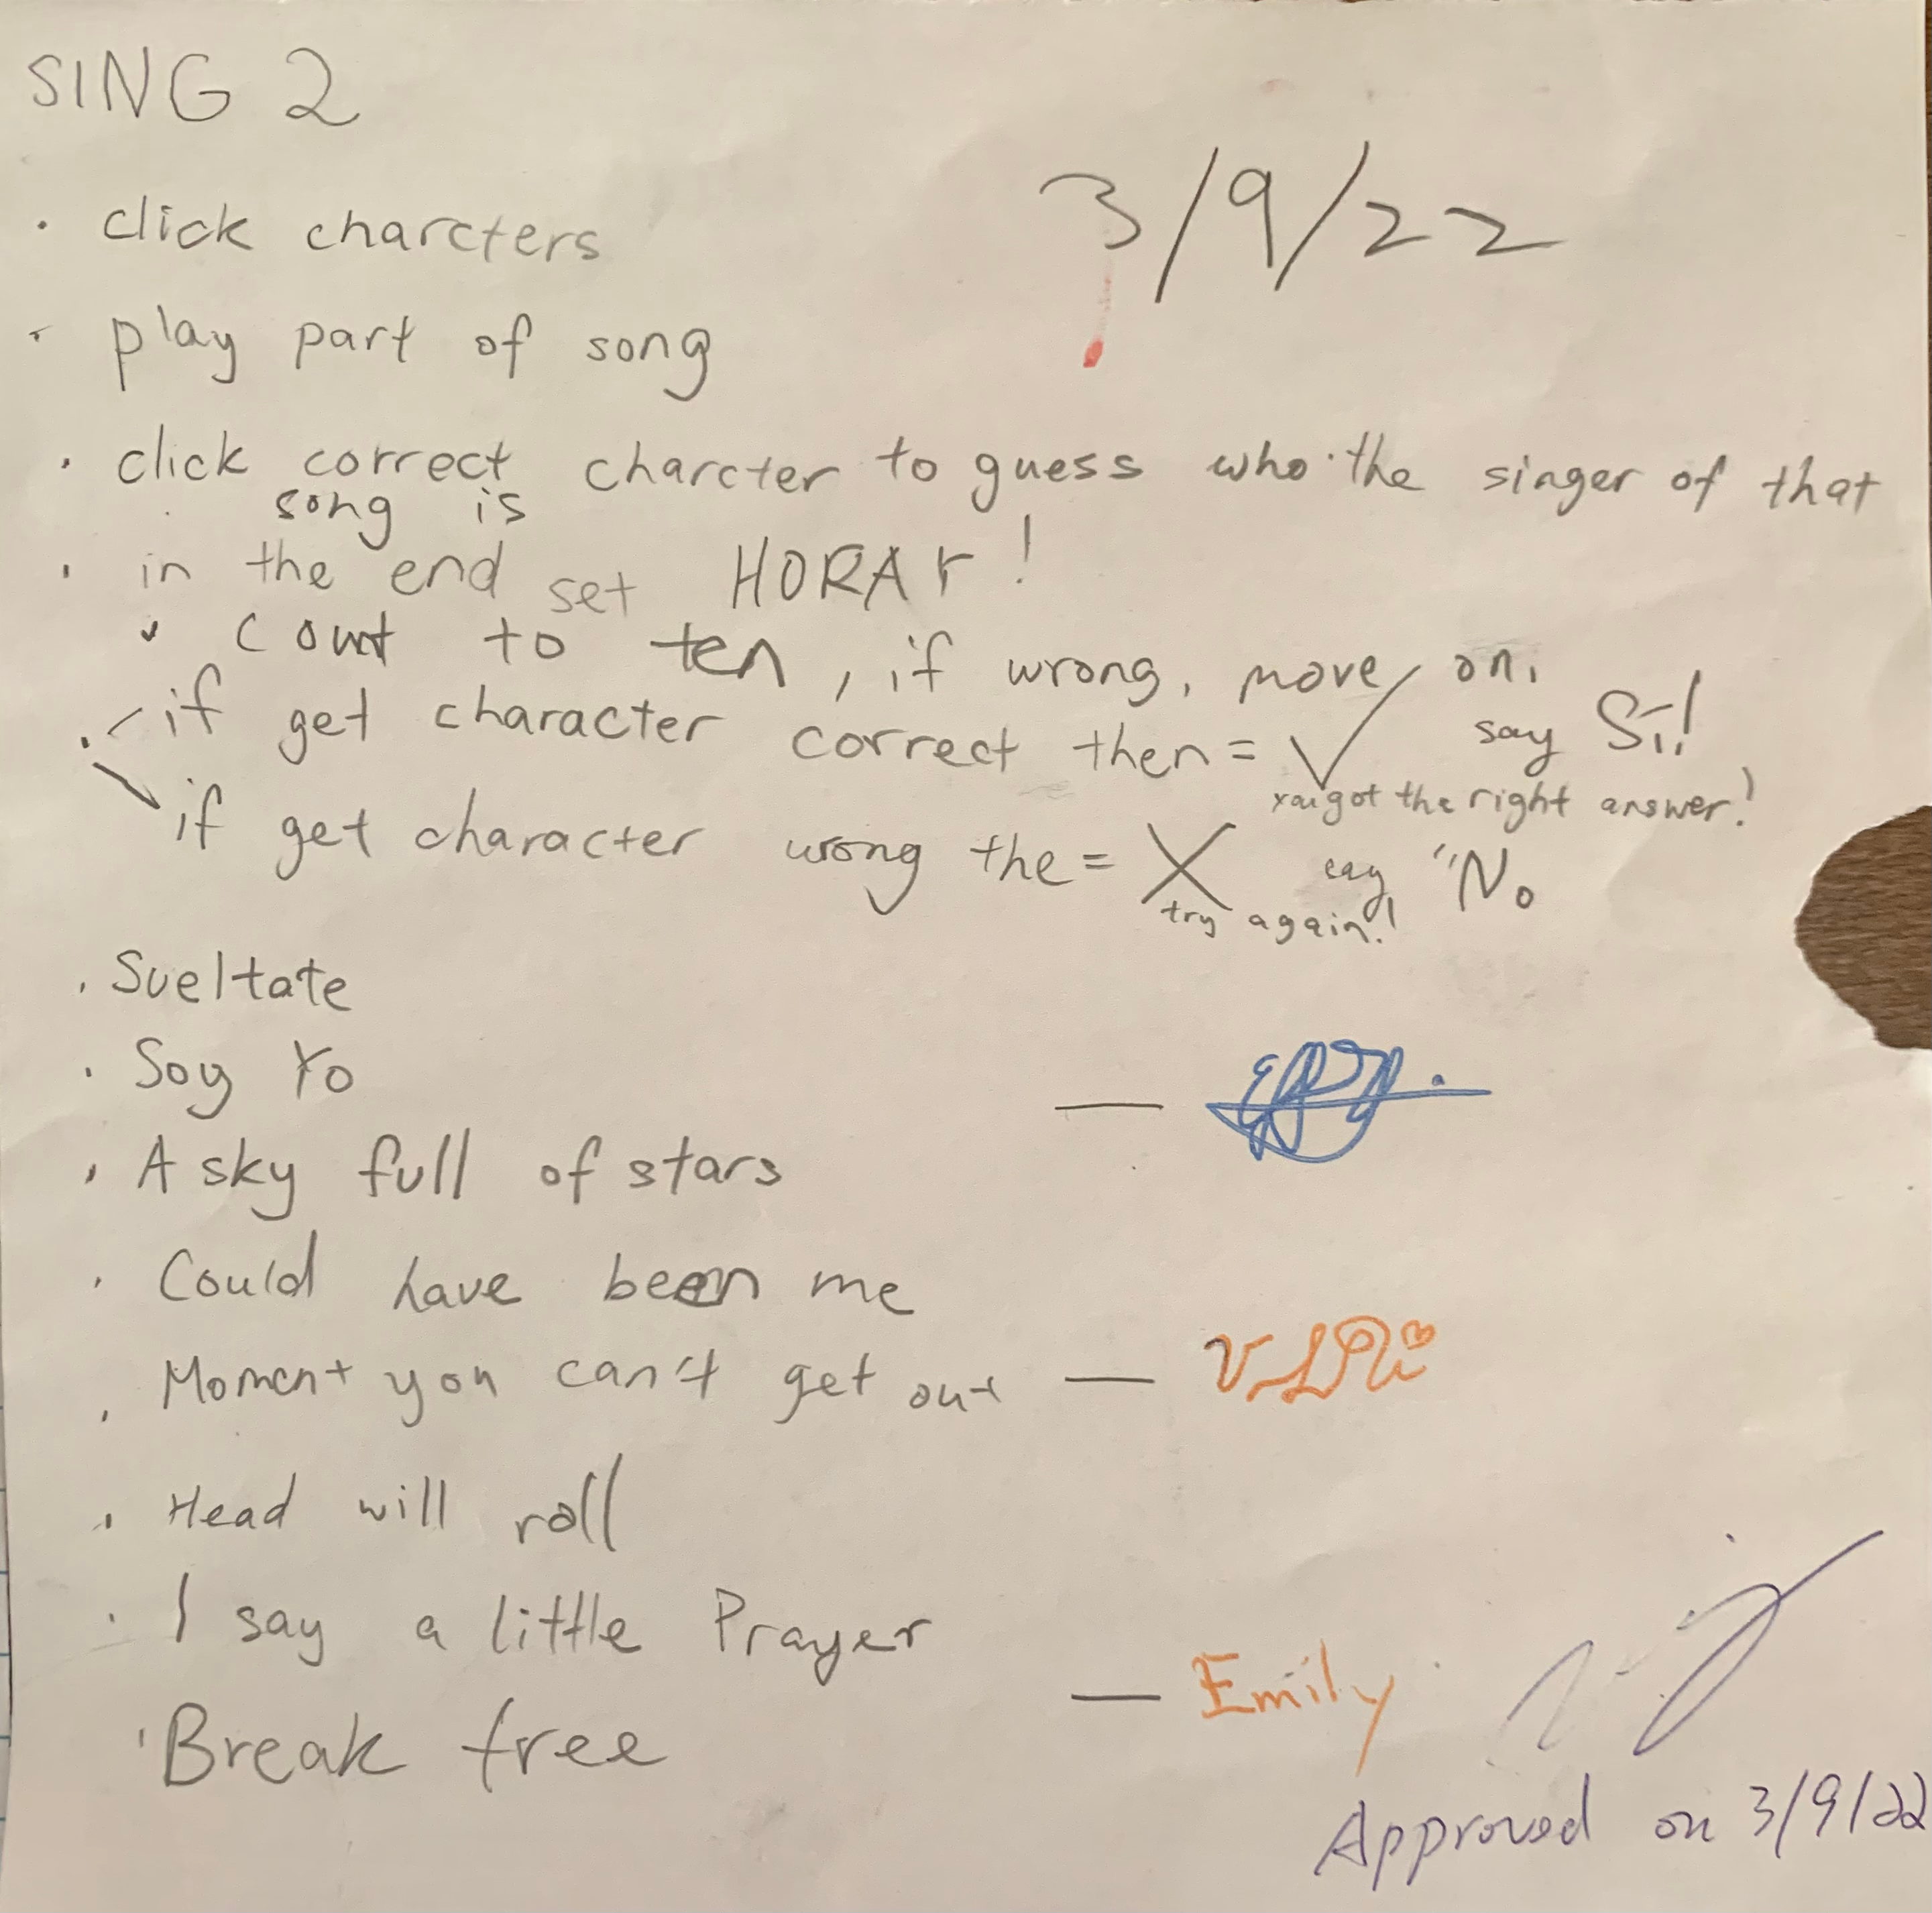 SING 2
3/9/22
· click charcters
· play part of song
· click correct charcter to guess who the singer of that
song is
· in the end set HORAY!
· Count to ten, if wrong, move on,
· if get character correct then = ✓ say Sí!
you got the right answer!
if get character wrong the = X say "No
try again!
· Sueltate
· Soy Yo
· A sky full of stars
· Could have been me
· Moment you can't get out —
· Head will roll
· I say a little Prayer
— Emily
· Break free
Approved on 3/9/22